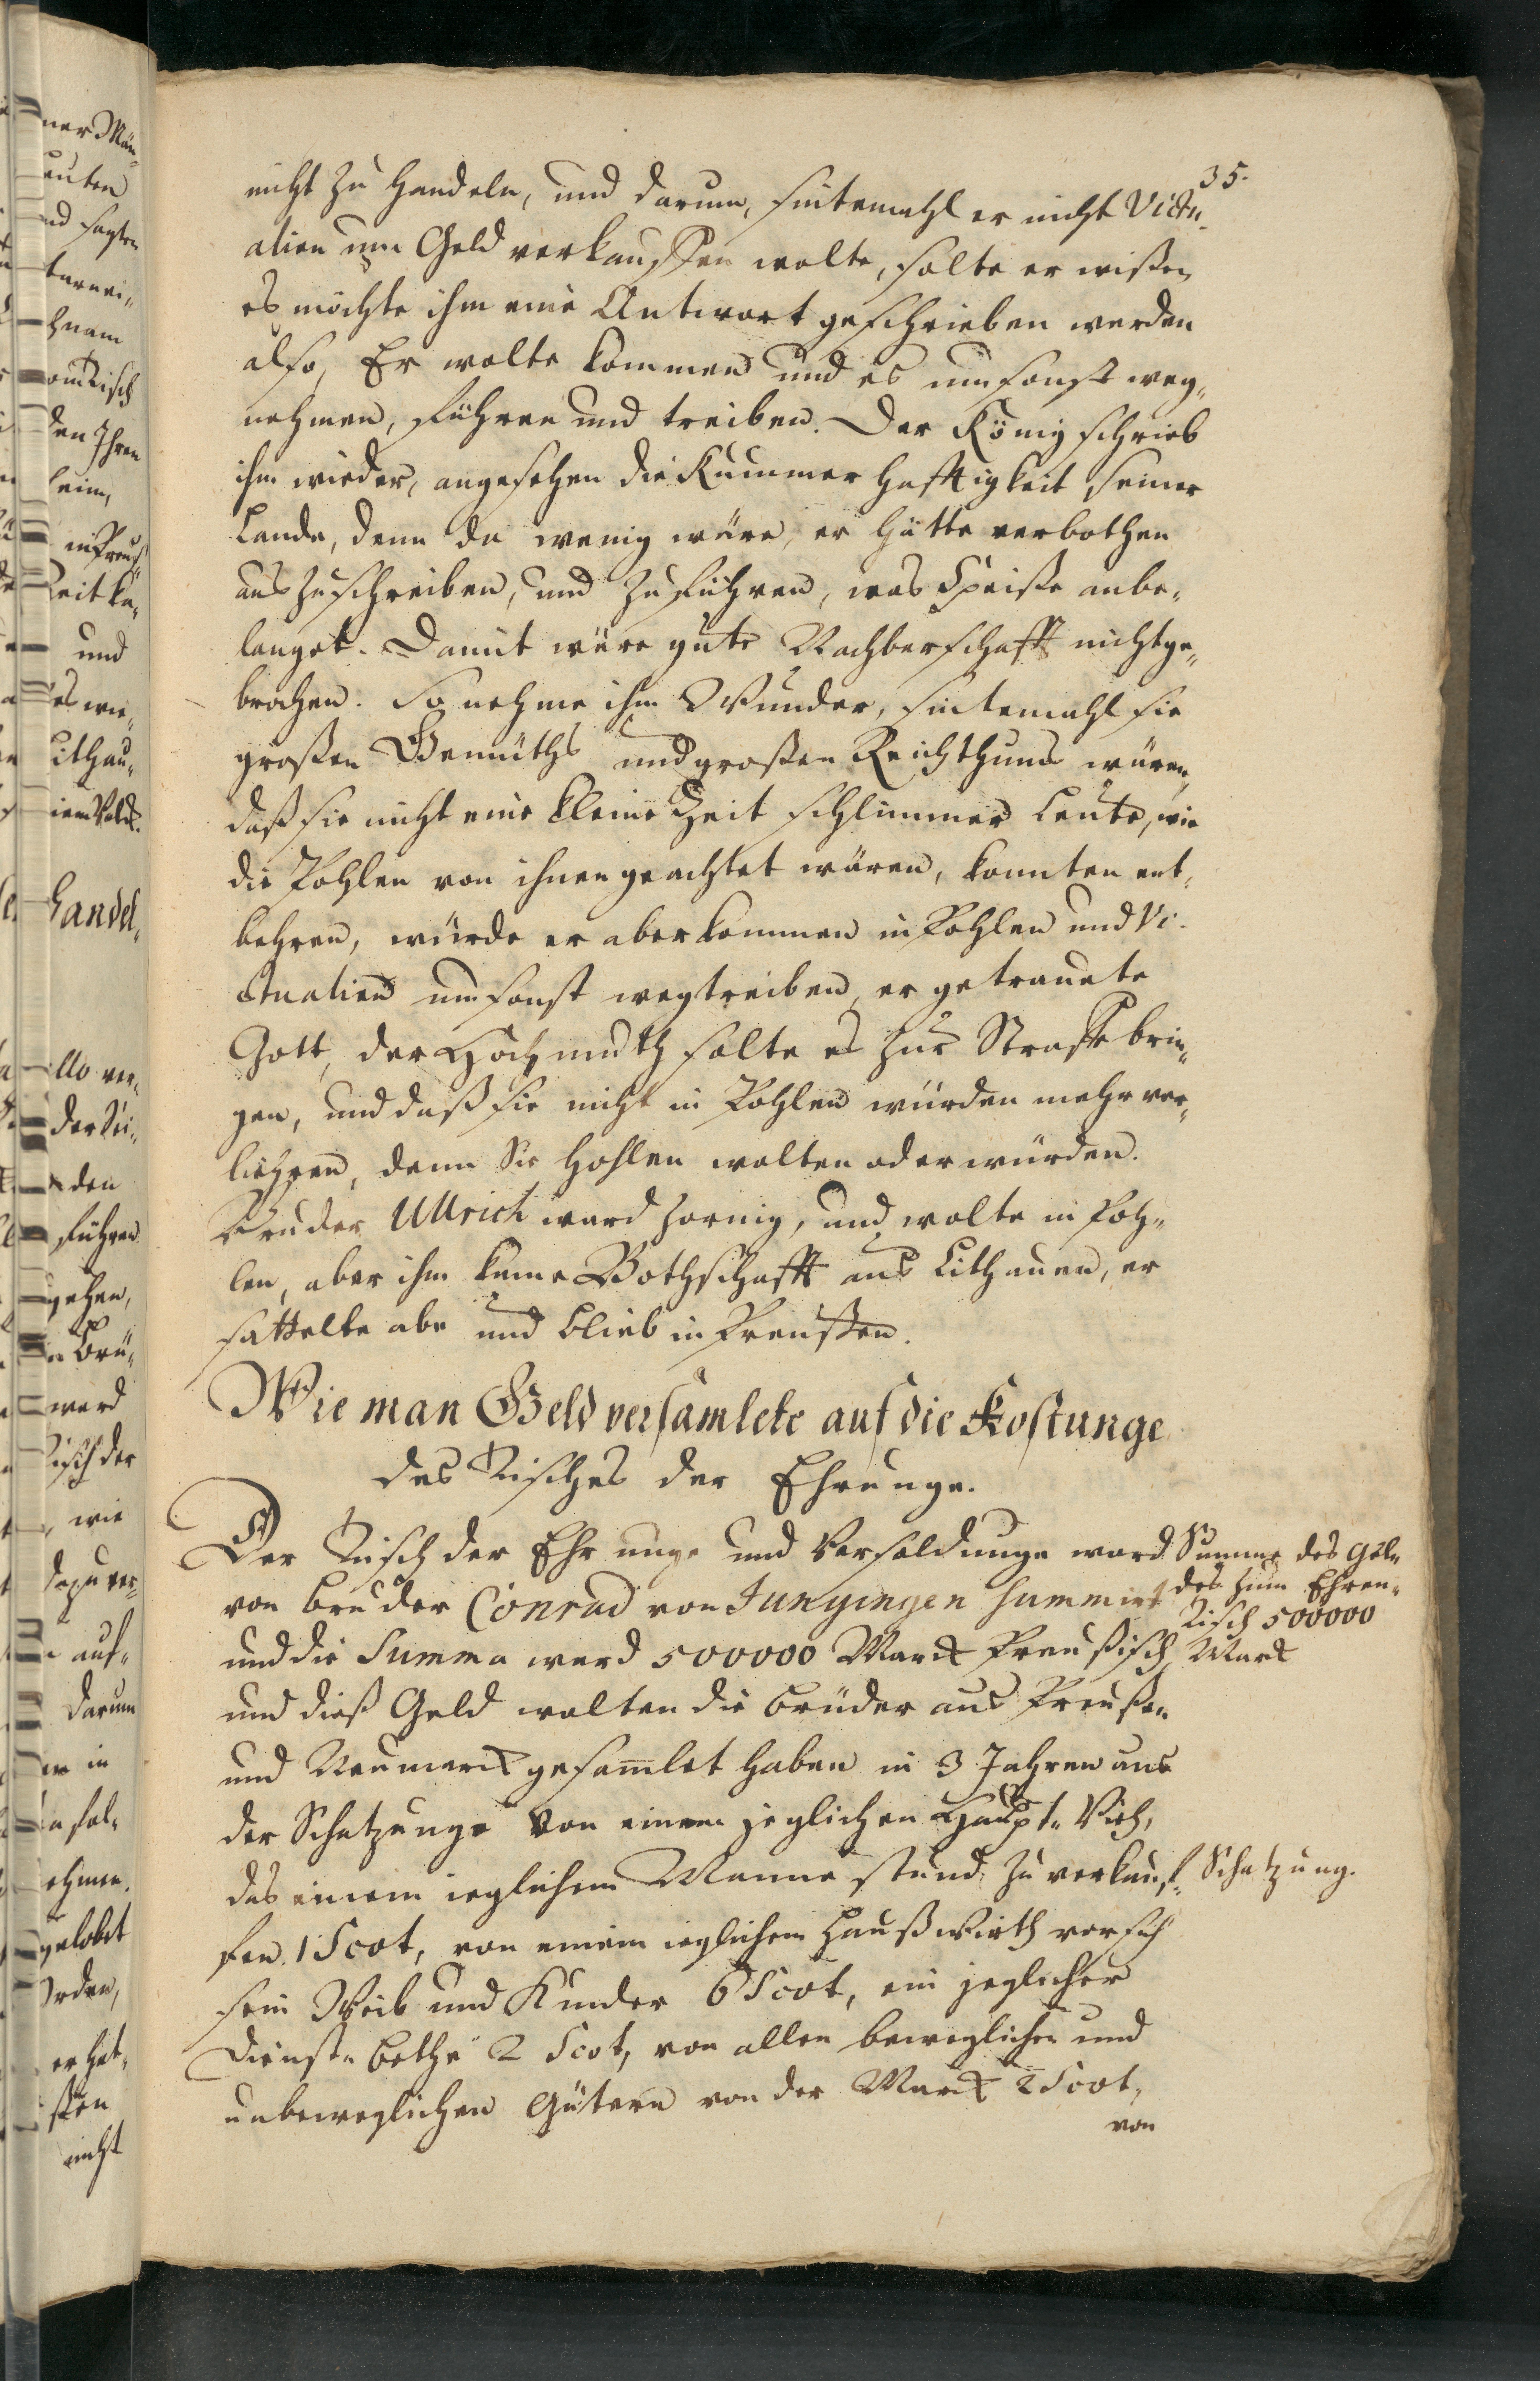 35.
nicht zu handeln, und darum, sintemahl er nicht Victu-
alien um Geld verkauffen wolte, solte er wißen,
es möchte ihm eine Antwort geschrieben werden
also, Er wolte kommen und es umsonst weg-
nehmen, führen und treiben. Der König schrieb
ihm wieder, angesehen die Kummerhafftigkeit seiner
Lande, denn da wenig wäre, er hätte verbothen
auszuschreiben, und zuführen, was Speiße anbe-
langet. Damit wäre gute Nachberschafft nicht ge-
brochen. So nehme ihm Wunder, sintemahl sie
großen Gemüths und großen Reichthums wären,
daß sie nicht eine kleine Zeit schlimmer Leute, wie
die Pohlen von ihnen geachtet wären, konnten ent-
behren, würde er aber kommen in Pohlen und Vi-
ctualien umsonst wegtreiben, er getrauete
Gott, der Hochmuth solte es zur Straffe brin-
gen, und daß sie nicht in Pohlen würden mehr ver-
liehren, denn Sie hohlen wolten oder würden.
Bruder Ullrich ward zornig, und wolte in Poh-
len, aber ihm kame Bothschafft aus Lithauen, er
sattelte abe und blieb in Preußen.
Wie man Geld versamlete auf die Kostunge
des Tisches der Ehrunge.
Der Tisch der Ehrunge und Versoldunge ward
von bruder Conrad von Jungingen summirt
und die Summa ward 500000 Marck Preußisch
und dieß Geld wolten die brüder aus Preußen
und Neumarck gesamlet haben in 3 Jahren aus
der Schatzunge von einem jeglichen Haupt-Vieh,
das einem ieglichem Manne stund zu verkauf-
fen 1 Scot, von einem ieglichem Haußwirth vor sich
sein Weib und Kinder 6 Scot, ein jeglicher
Dienst-bothe 2 Scot, von allen beweglichen und
unbeweglichen Gütern von der Marck 2 Scot,
von
Summa des Gel-
des zum Ehren-
Tisch 500000
Marck
Schatzung.